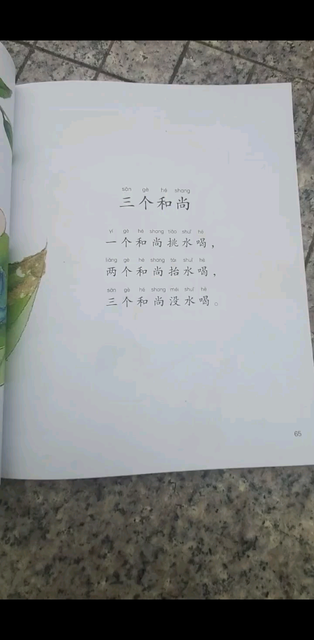 sān gè hé shàng
三个和尚
yí gè hé shang tiāo shuǐ hē
一个和尚挑水喝，
liǎng gè hé shang tái shuǐ hē
两个和尚抬水喝，
sān gè hé shang méi shuǐ hē
三个和尚没水喝。
65